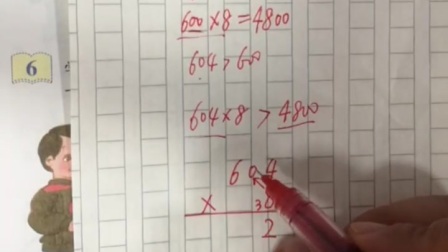 600×8=4800
604>600
604×8 > 4800
604
× 30
2
6